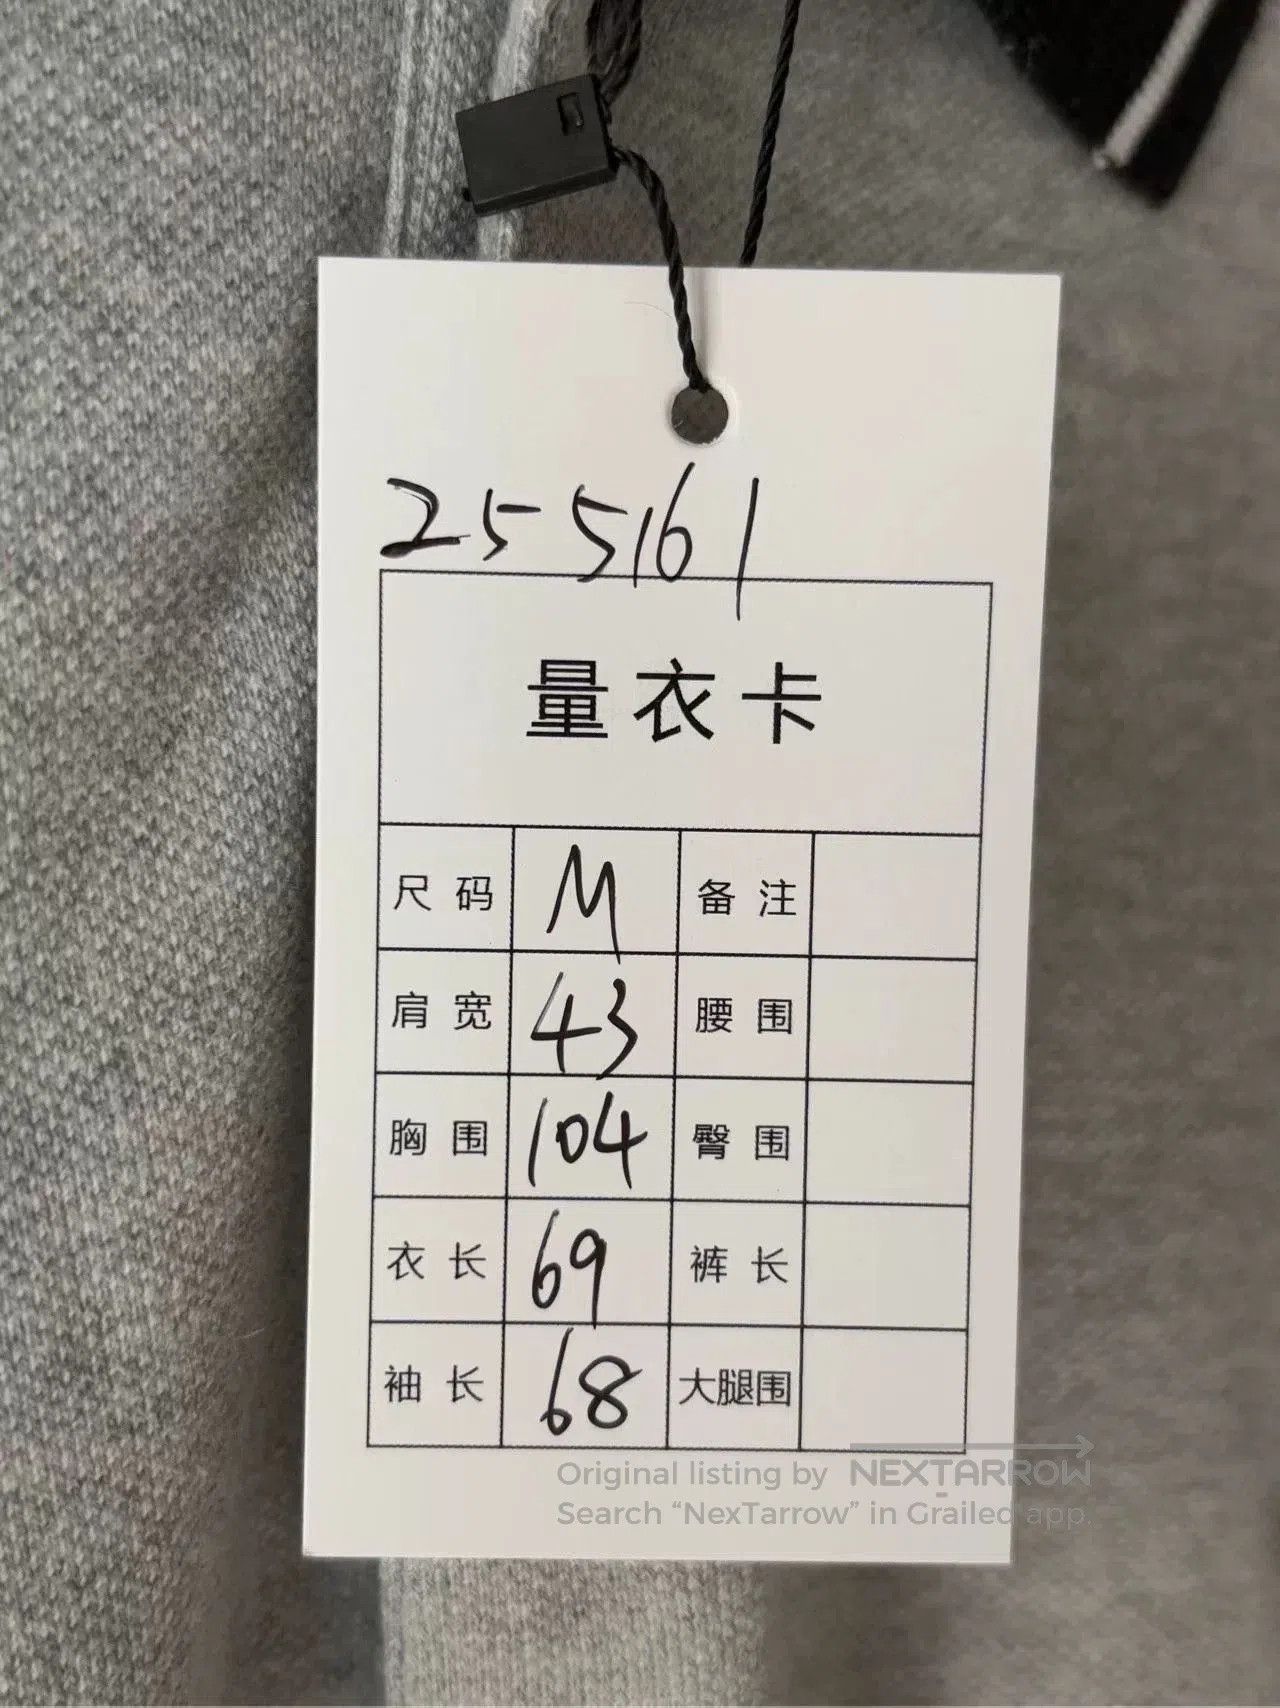 255161
量衣卡
尺码 M 备注
肩宽 43 腰围
胸围 104 臀围
衣长 69 裤长
袖长 68 大腿围
Original listing by NEXTARROW
Search “NexTarrow” in Grailed app.